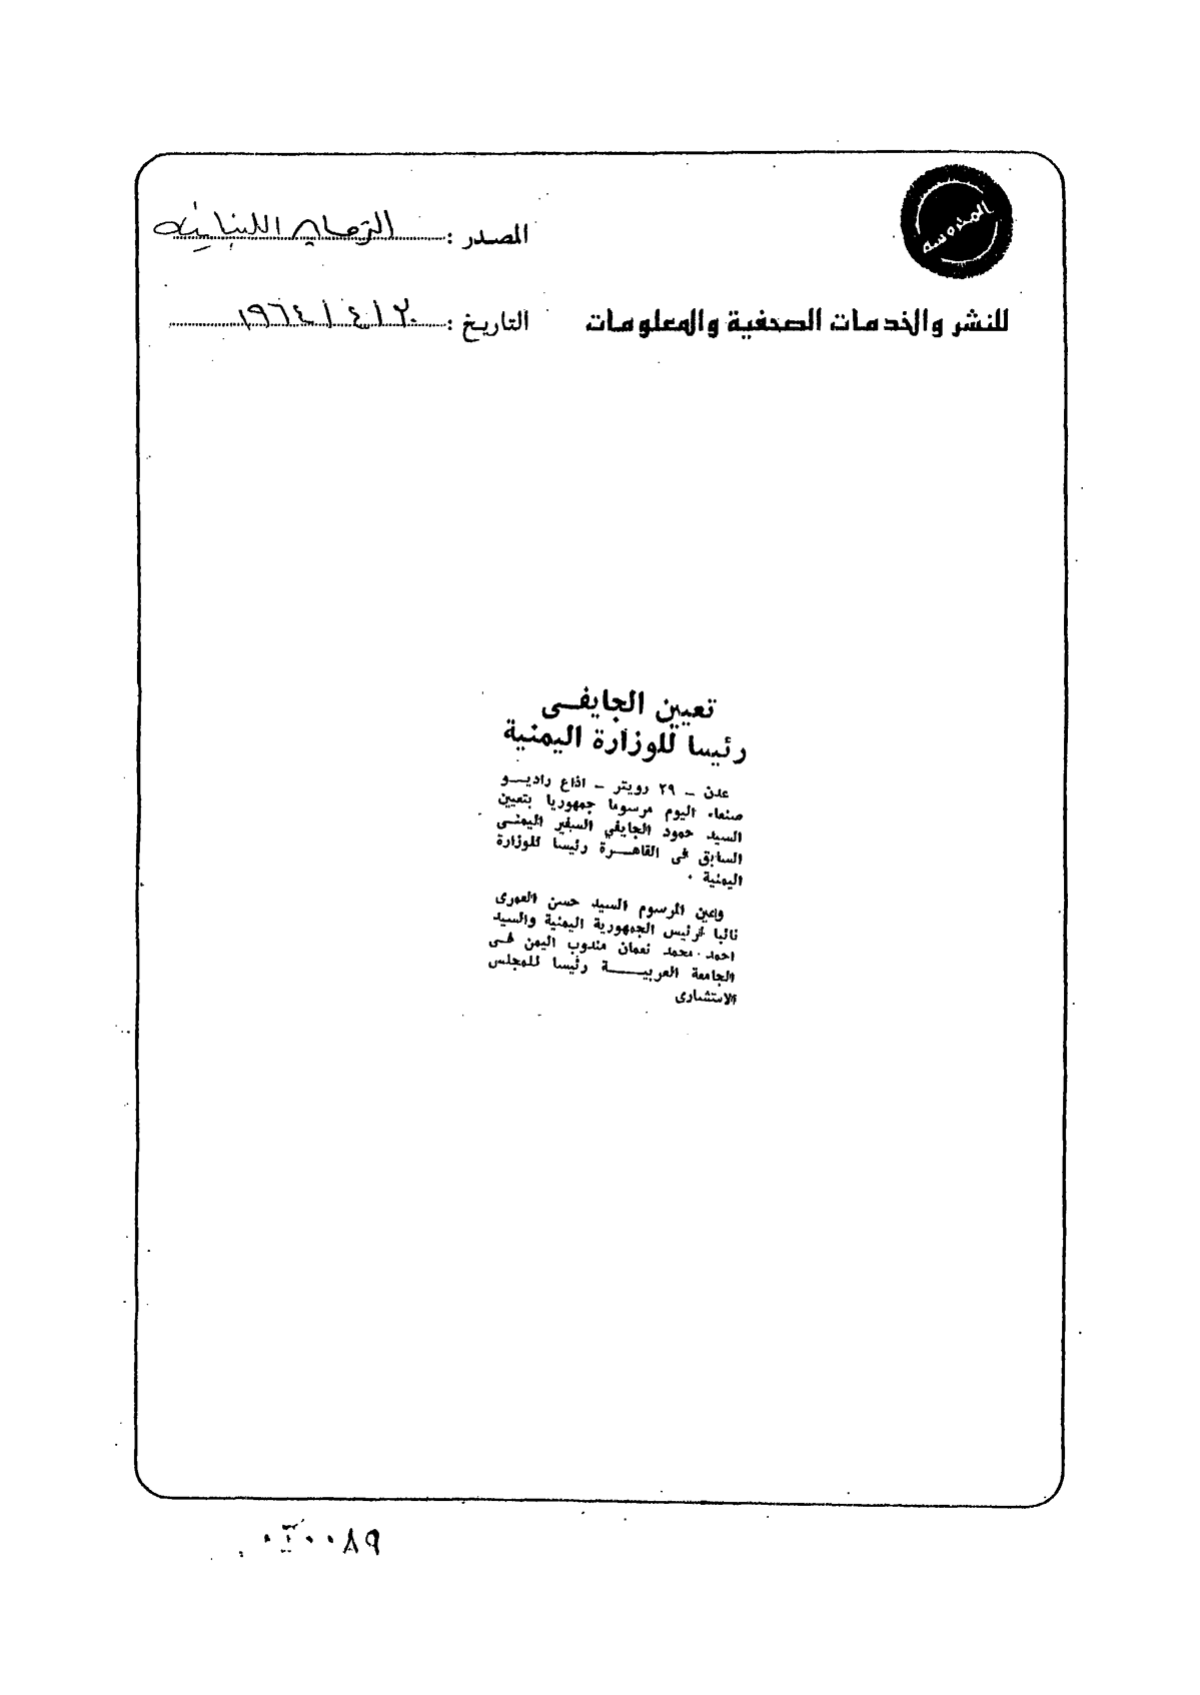 المحروسة
المصدر : اللبنانية
للنشر والخدمات الصحفية والمعلومات
التاريخ : ٣٠ / ٤ / ١٩٦٤
تعيين الجايفى
رئيسا للوزارة اليمنية
عدن ــ ٢٩ رويتر ــ اذاع راديـــو
صنعاء اليوم مرسوما جمهوريا بتعيين
السيد حمود الجايفي السفير اليمنــى
السابق فى القاهــــرة رئيسا للوزارة
اليمنية .
وعين المرسوم السيد حسن العمرى
نائبا لرئيس الجمهورية اليمنية والسيد
احمد محمد نعمان مندوب اليمن فــى
الجامعة العربيــــــة رئيسا للمجلس
الاستشارى